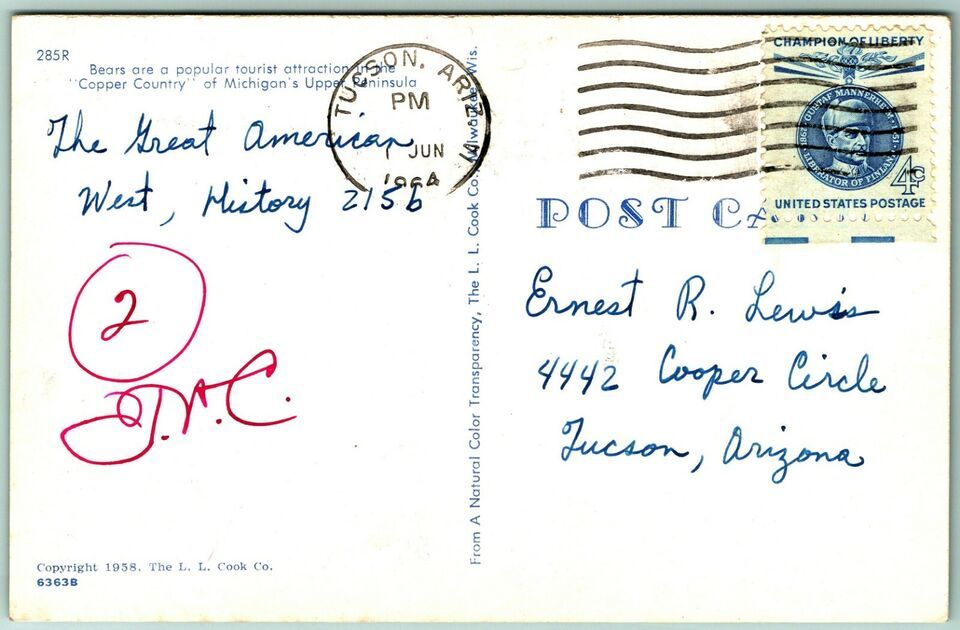 285R
Bears are a popular tourist attraction in the
"Copper Country" of Michigan's Upper Peninsula
The Great American
West, History 215b
2
J.A.C.
Copyright 1958. The L. L. Cook Co.
6363B
From A Natural Color Transparency, The L. L. Cook Co., Milwaukee, Wis.
TUCSON, ARIZ.
PM
1 JUN
1964
CHAMPION OF LIBERTY
GUSTAF MANNERHEIM
1867
LIBERATOR OF FINLAND
4¢
UNITED STATES POSTAGE
POST CA
Ernest R. Lewis
4442 Cooper Circle
Tucson, Arizona